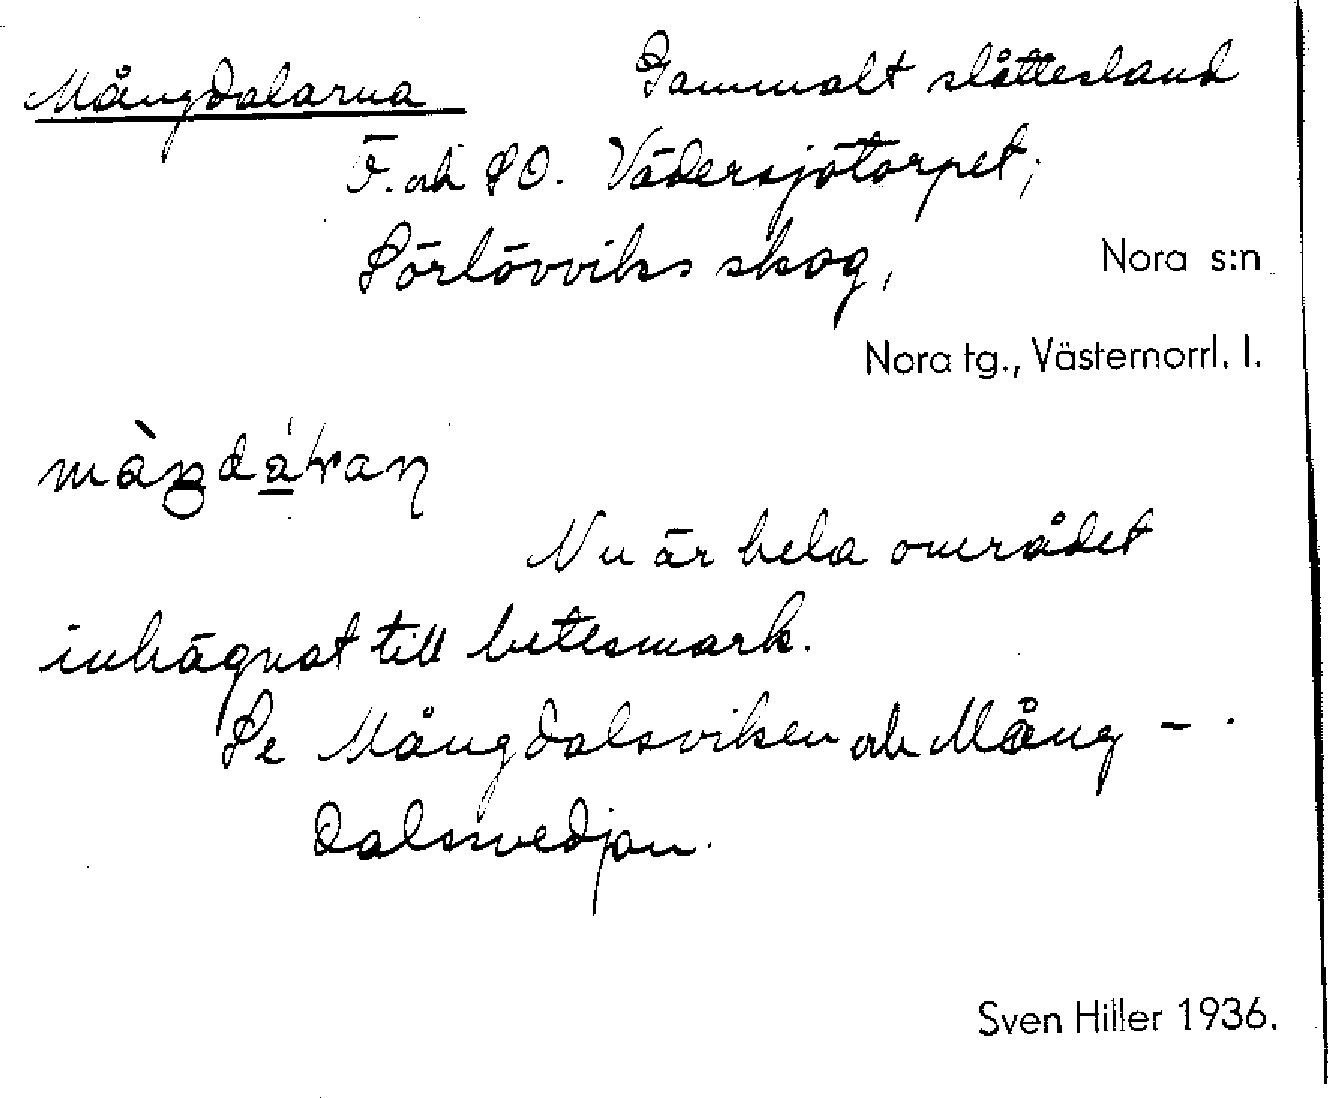 Mångdalarna Gammalt slåttesland
Ö. och SO. Vädersjötorpet,
Sörlövviks skog, Nora s:n
Nora tg., Västernorrl. l.
Nu är hela området
inhägnat till betesmark.
Se Mångdalsviken och Mång-
dalssvedjan.
Sven Hiller 1936.